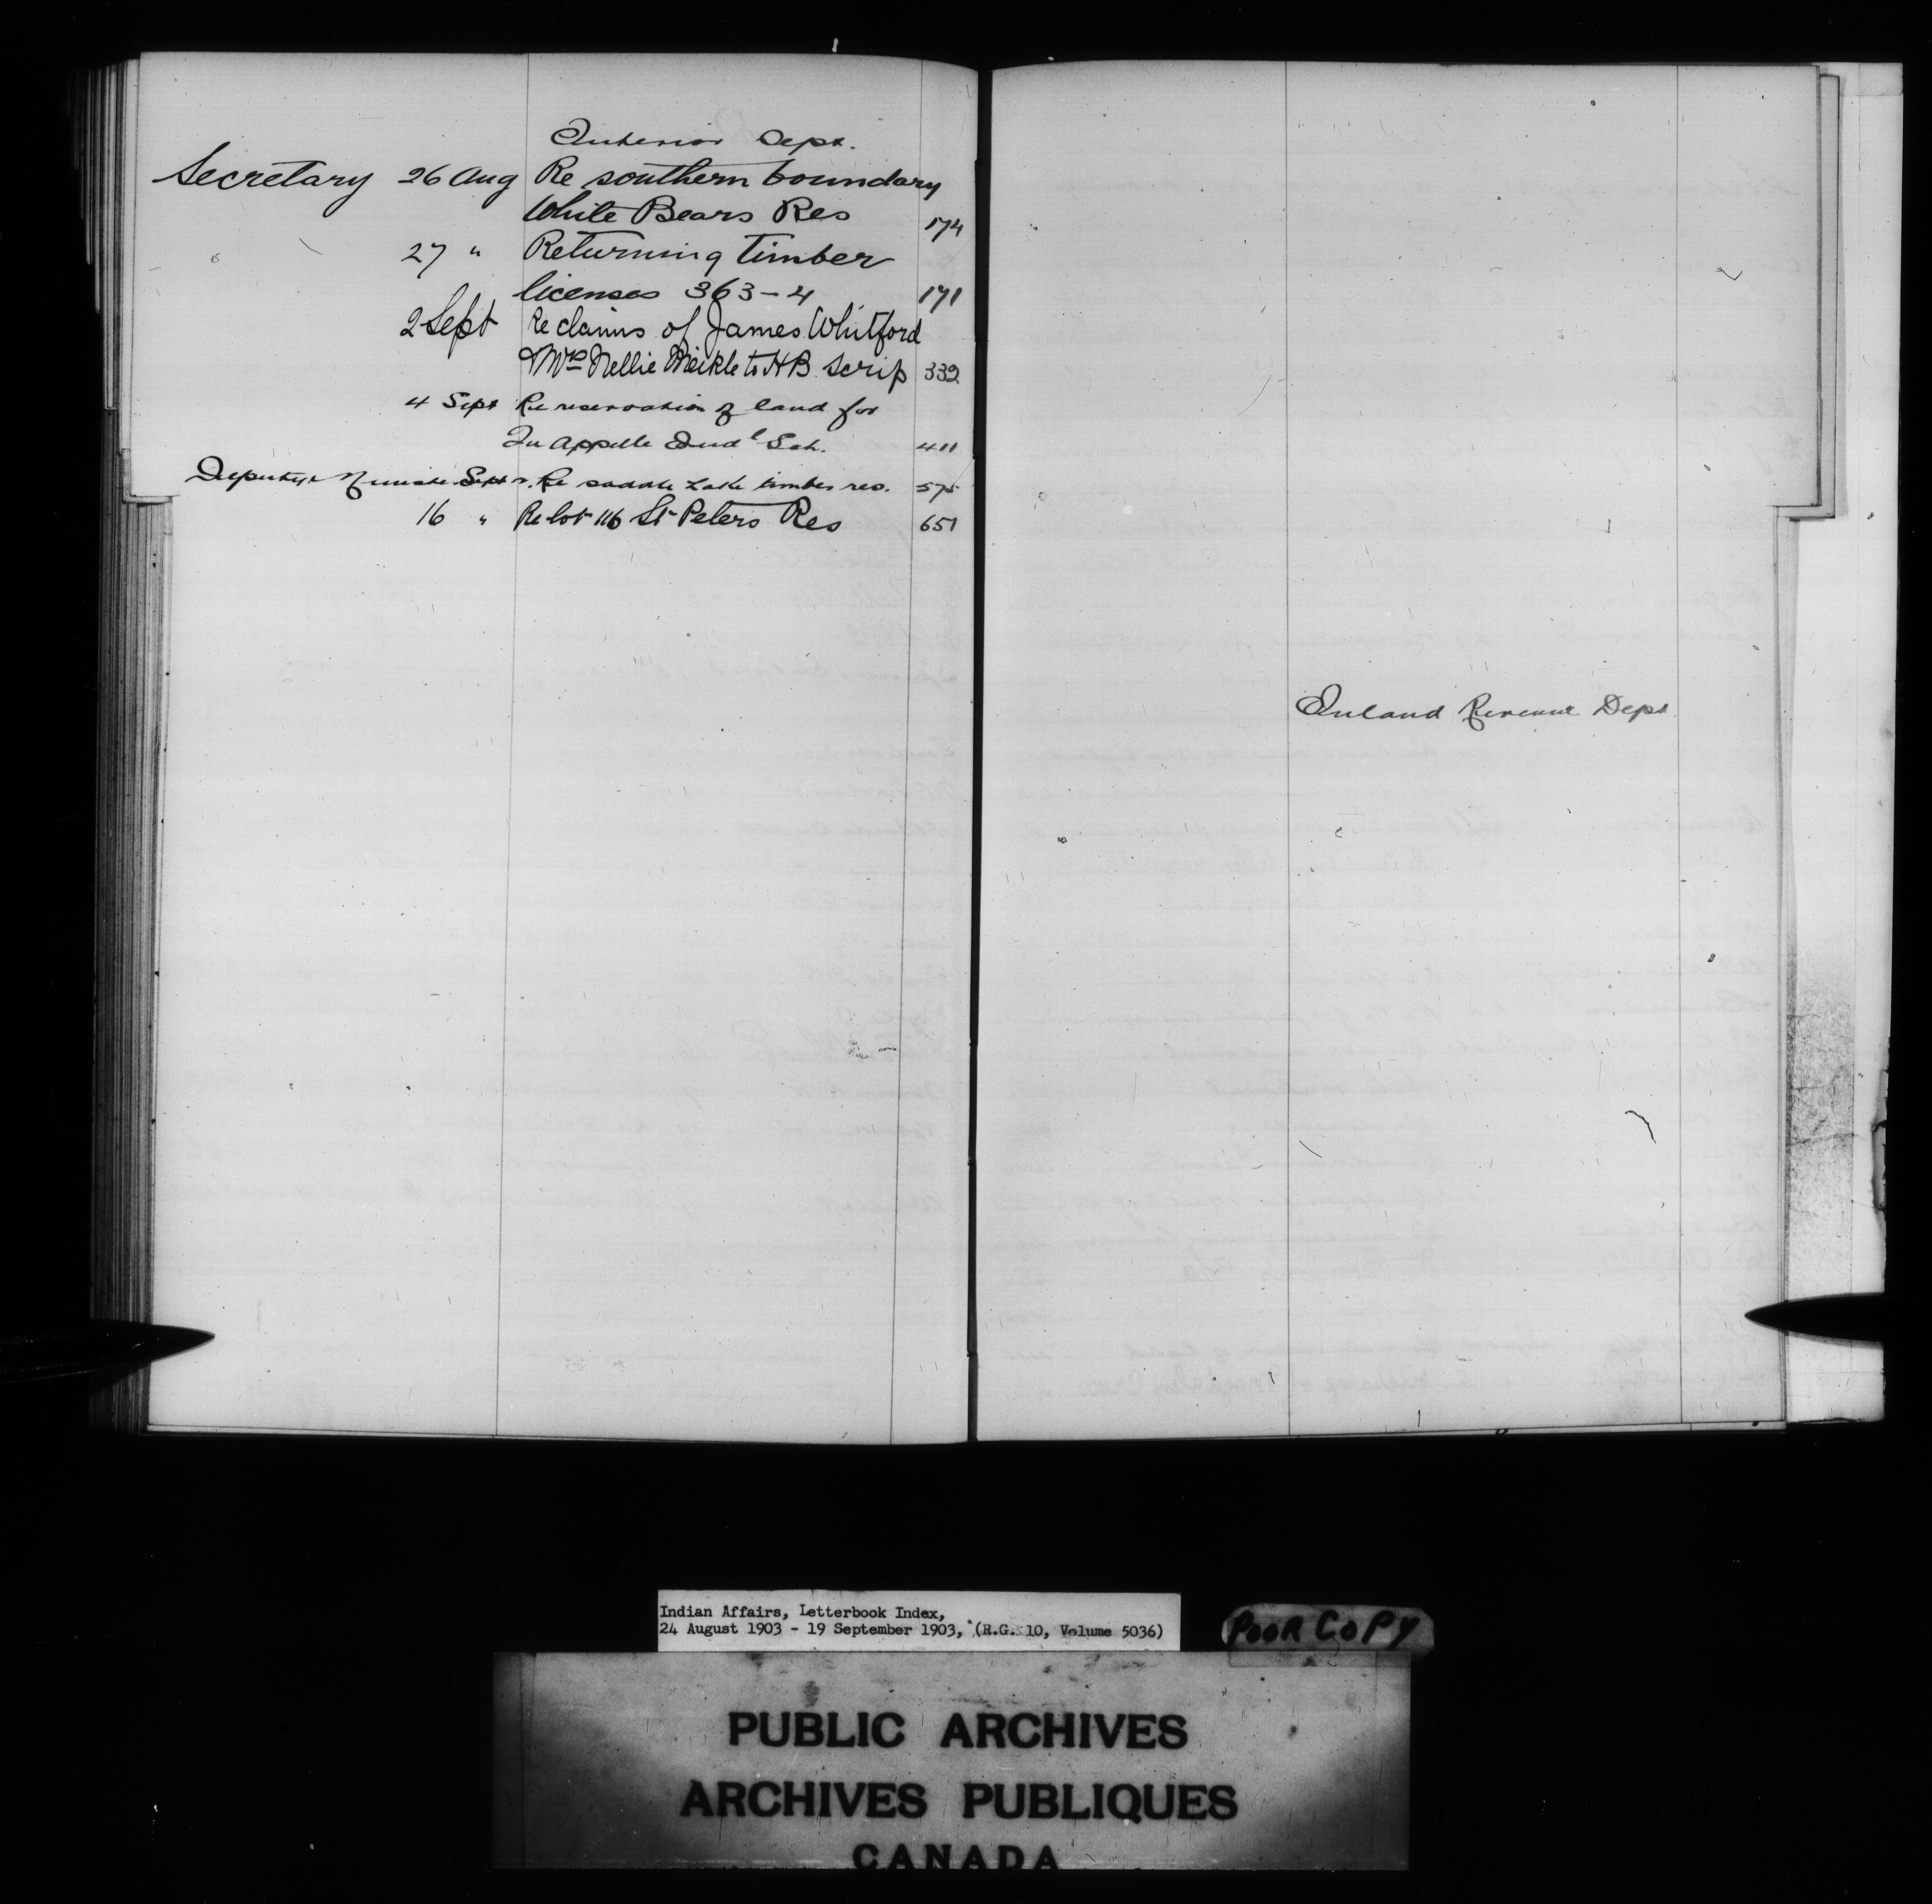 Interior Dept.
Secretary 26 Aug Re southern boundary
White Bears Res 174
27 " Returning timber
licenses 363-4 171
2 Sept Re claims of James Whitford
& Mrs Nellie Meikle to HB scrip 332
4 Sept Re reservation of land for
Qu Appelle Indl Sch. 411
Deputy Minister Sept Re Saddle Lake timber res. 575
16 " Re lot 116 St Peters Res 651
Inland Revenue Dept
Indian Affairs, Letterbook Index,
24 August 1903 - 19 September 1903, (R.G. 10, Volume 5036)
POOR COPY
PUBLIC ARCHIVES
ARCHIVES PUBLIQUES
CANADA